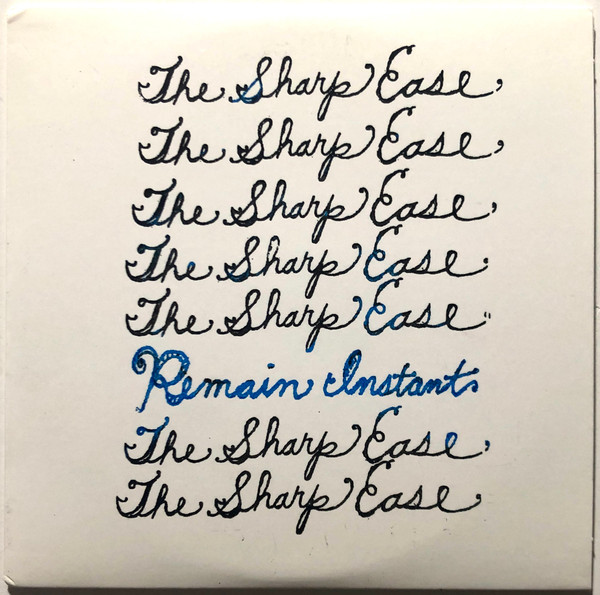 The Sharp Ease
The Sharp Ease
The Sharp Ease
The Sharp Ease
The Sharp Ease
Remain Instant
The Sharp Ease
The Sharp Ease